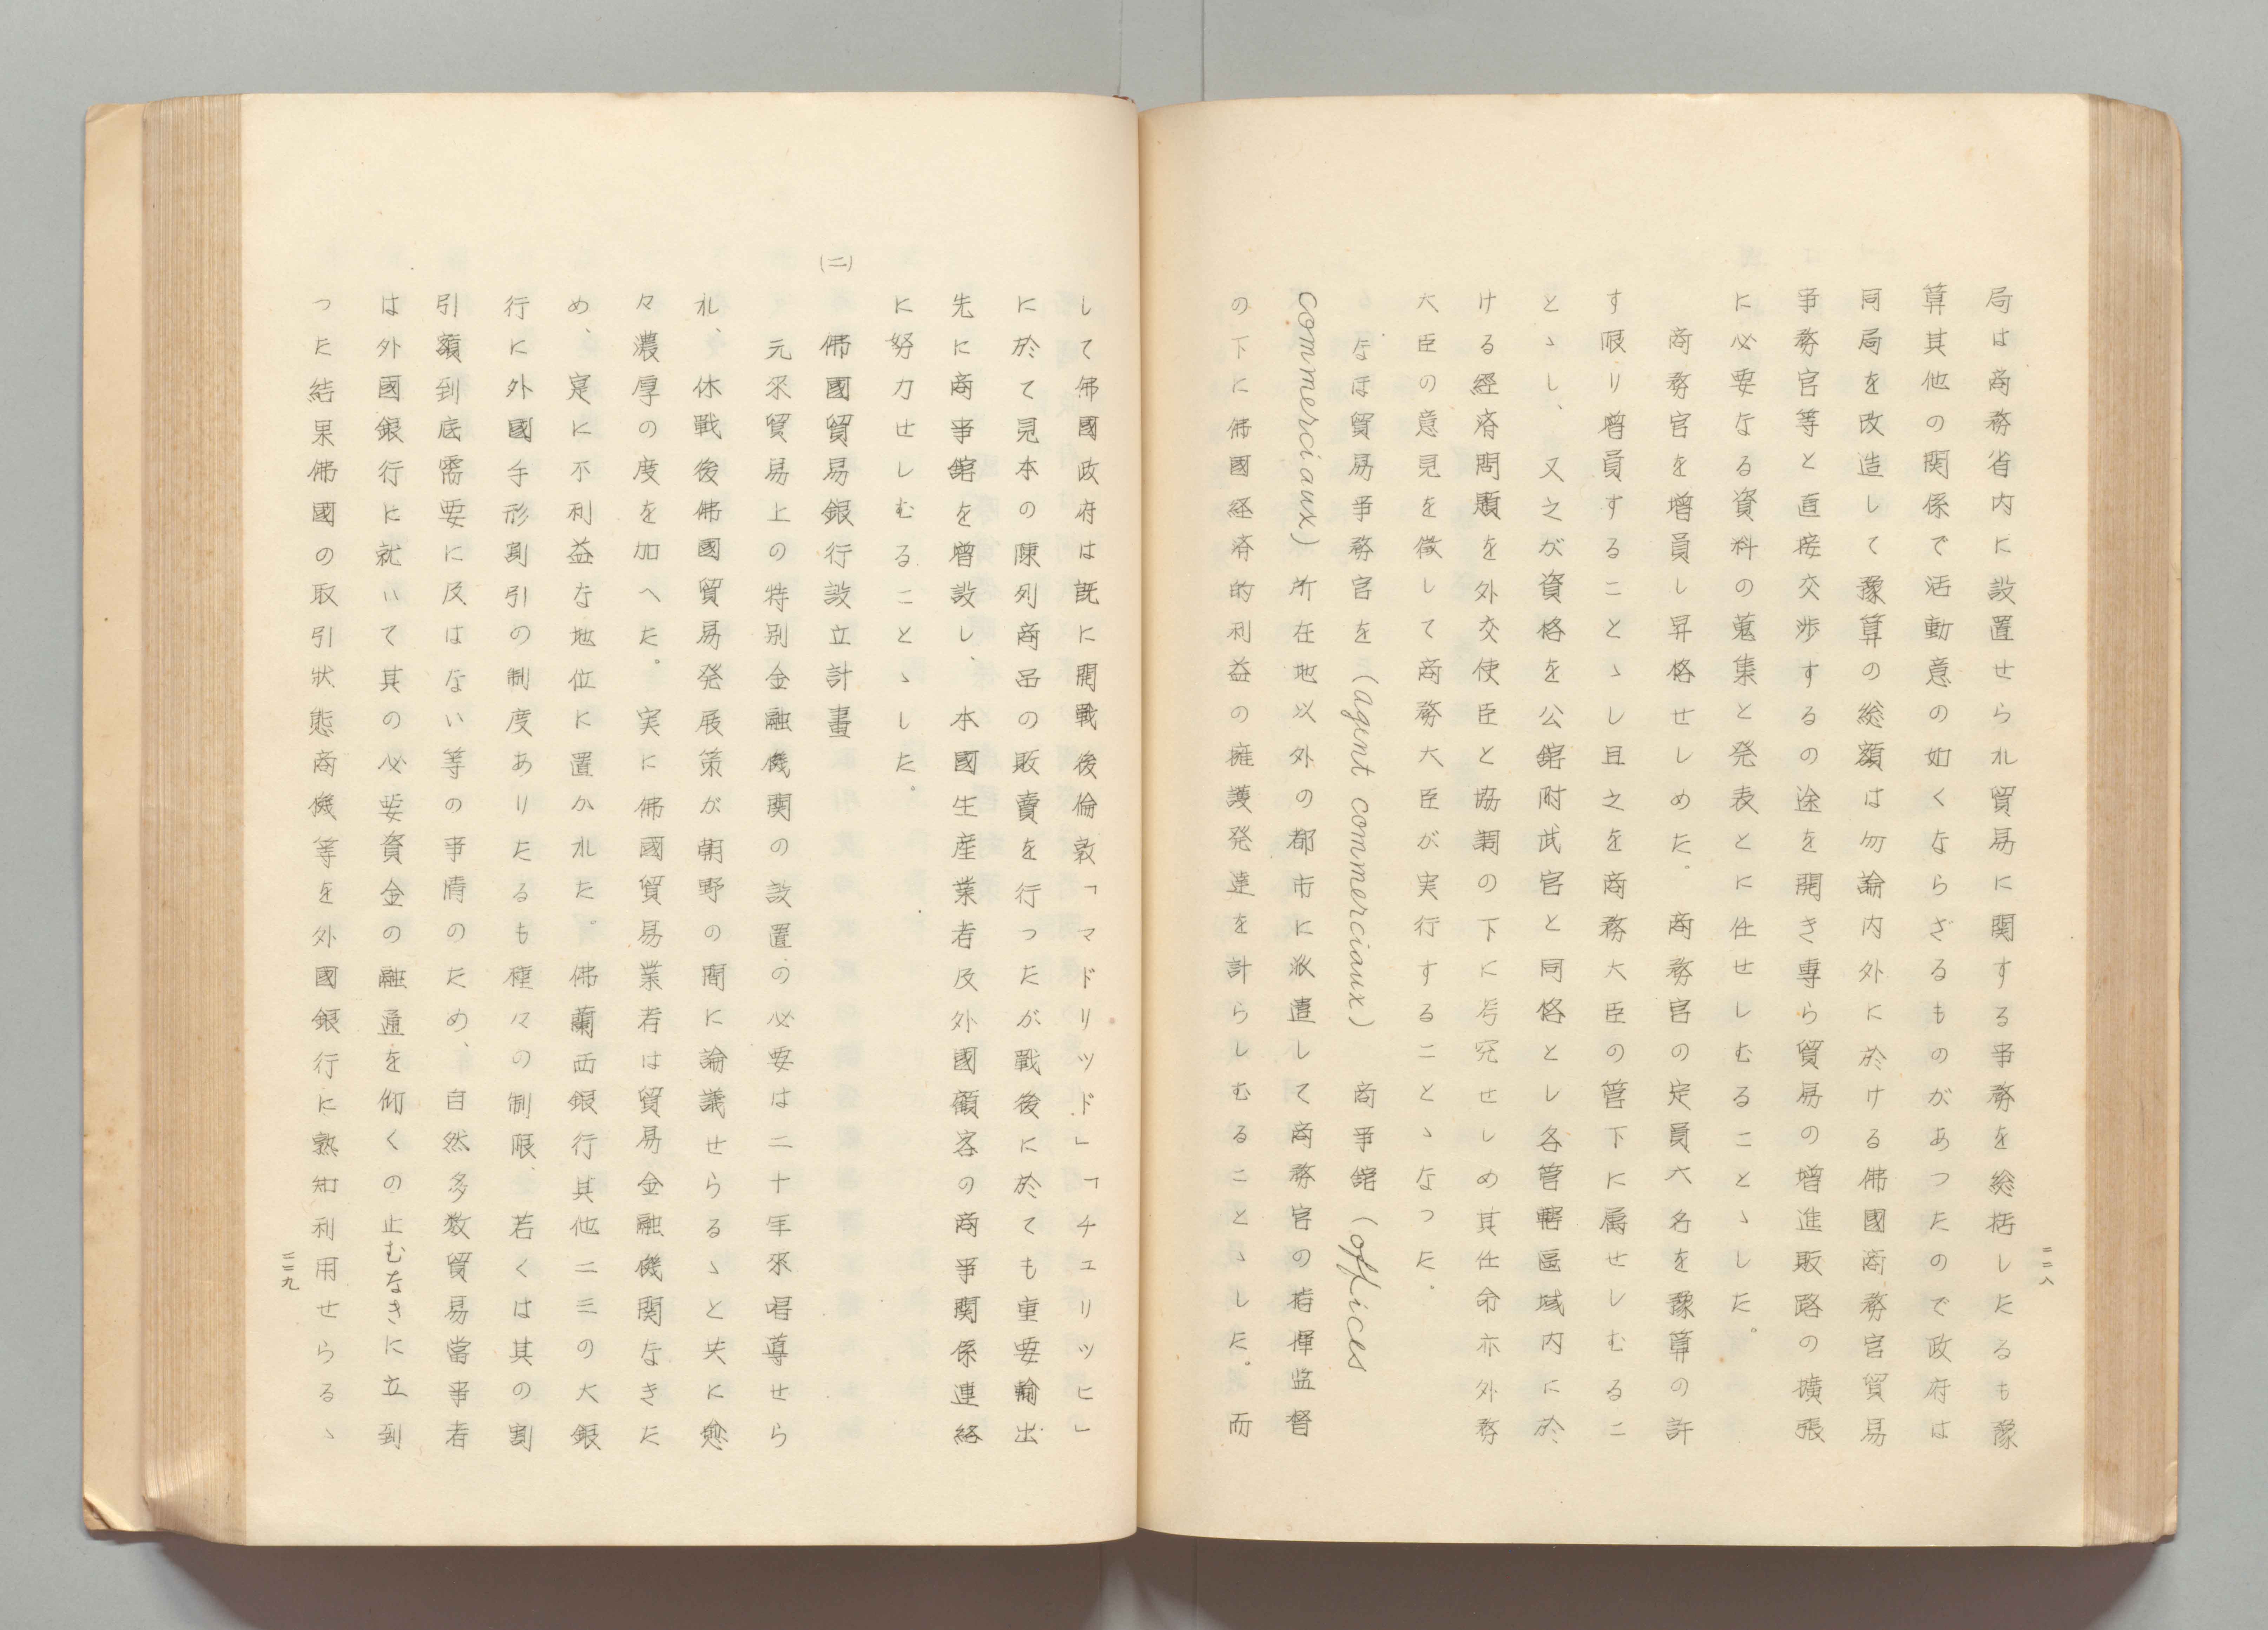 二二八
局は商務省内に設置せられ貿易に関する事務を総括したるも豫
算其他の関係で活動意の如くならざるものがあつたので政府は
同局を改造して豫算の総額は勿論内外に於ける佛國商務官貿易
事務官等と直接交渉するの途を開き專ら貿易の増進販路の擴張
に必要なる資料の蒐集と発表とに任せしむることゝした。
商務官を増員し昇格せしめた。商務官の定員六名を豫算の許
す限り増員することゝし且之を商務大臣の管下に属せしむるこ
とゝし、又之が資格を公館附武官と同格とし各管轄區域内に於
ける経済問題を外交使臣と協調の下に考究せしめ其任命亦外務
大臣の意見を徴して商務大臣が実行することゝなつた。
なほ貿易事務官を(agent commerciaux) 商事舘 (offices
commerciaux) 所在地以外の都市に派遣して商務官の指揮監督
の下に佛國経済的利益の擁護発達を計らしむることゝした。而
して佛國政府は既に開戰後倫敦「マドリッド」「チユリッヒ」
に於て見本の陳列商品の販賣を行つたが戰後に於ても重要輸出
先に商事舘を増設し、本國生産業者及外國顧客の商事関係連絡
に努力せしむることゝした。
(二) 佛國貿易銀行設立計畫
元來貿易上の特別金融機関の設置の必要は二十年來唱導せら
れ、休戰後佛國貿易発展策が朝野の間に論議せらるゝと共に愈
々濃厚の度を加へた。実に佛國貿易業者は貿易金融機関なきた
め、寔に不利益な地位に置かれた。佛蘭西銀行其他二三の大銀
行に外國手形割引の制度ありたるも種々の制限、若くは其の割
引額到底需要に及はない等の事情のため、自然多数貿易當事者
は外國銀行に就いて其の必要資金の融通を仰くの止むなきに立到
つた結果佛國の取引状態商機等を外國銀行に熟知利用せらるゝ
二二九